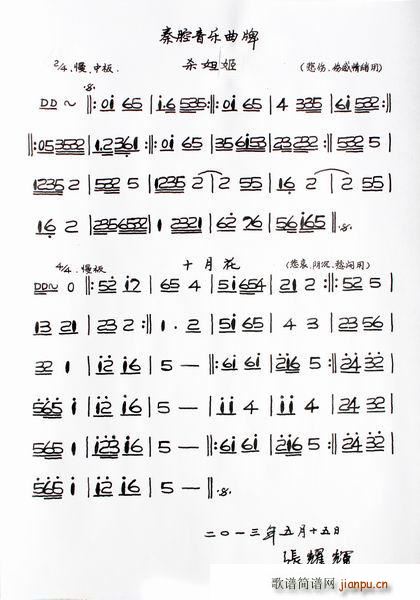 秦腔音乐曲牌
2/4、慢、中板. 杀妲姬 (悲伤、伤感情绪用)
DD～ ‖: 0i 65 | i.6 535 :‖: 0i 65 | 4 335 | 6532 :‖
‖: 053532 | 1.2361 :‖: 0i 65 | 356i53 | 23232 :‖: 532 5 |
1235 2 | 232 532 | 1235 2 | 2 235 | 16 2 | 2 235 |
16 2 | 2356532 | 1 2321 | 62 76 | 56i65 ‖
4/4、慢板 十月花 (悲哀、阴沉、愁闷用)
DD～ 0 ‖: 52 i7 | 65 4 | 5i654 | 21 2 :‖: 5 |
13 21 | 23 2 :‖ 1 . 2 | 5i 65 | 4 3 | 23 56 |
32 1 | i2 i6 | 5 — :‖: 6i 6i | 2i6 5 :‖: 24 32 |
565 i | i2 i6 | 5 — | ii 4 | ii 4 | 24 32 |
565 i | i23 i6 | 5 — :‖: 6i 6i | 2i6 5 :‖ 24 32 |
565 i | i2 i6 | 5 — ‖
二〇一三年五月十五日
張耀輝
歌谱简谱网
jianpu.cn